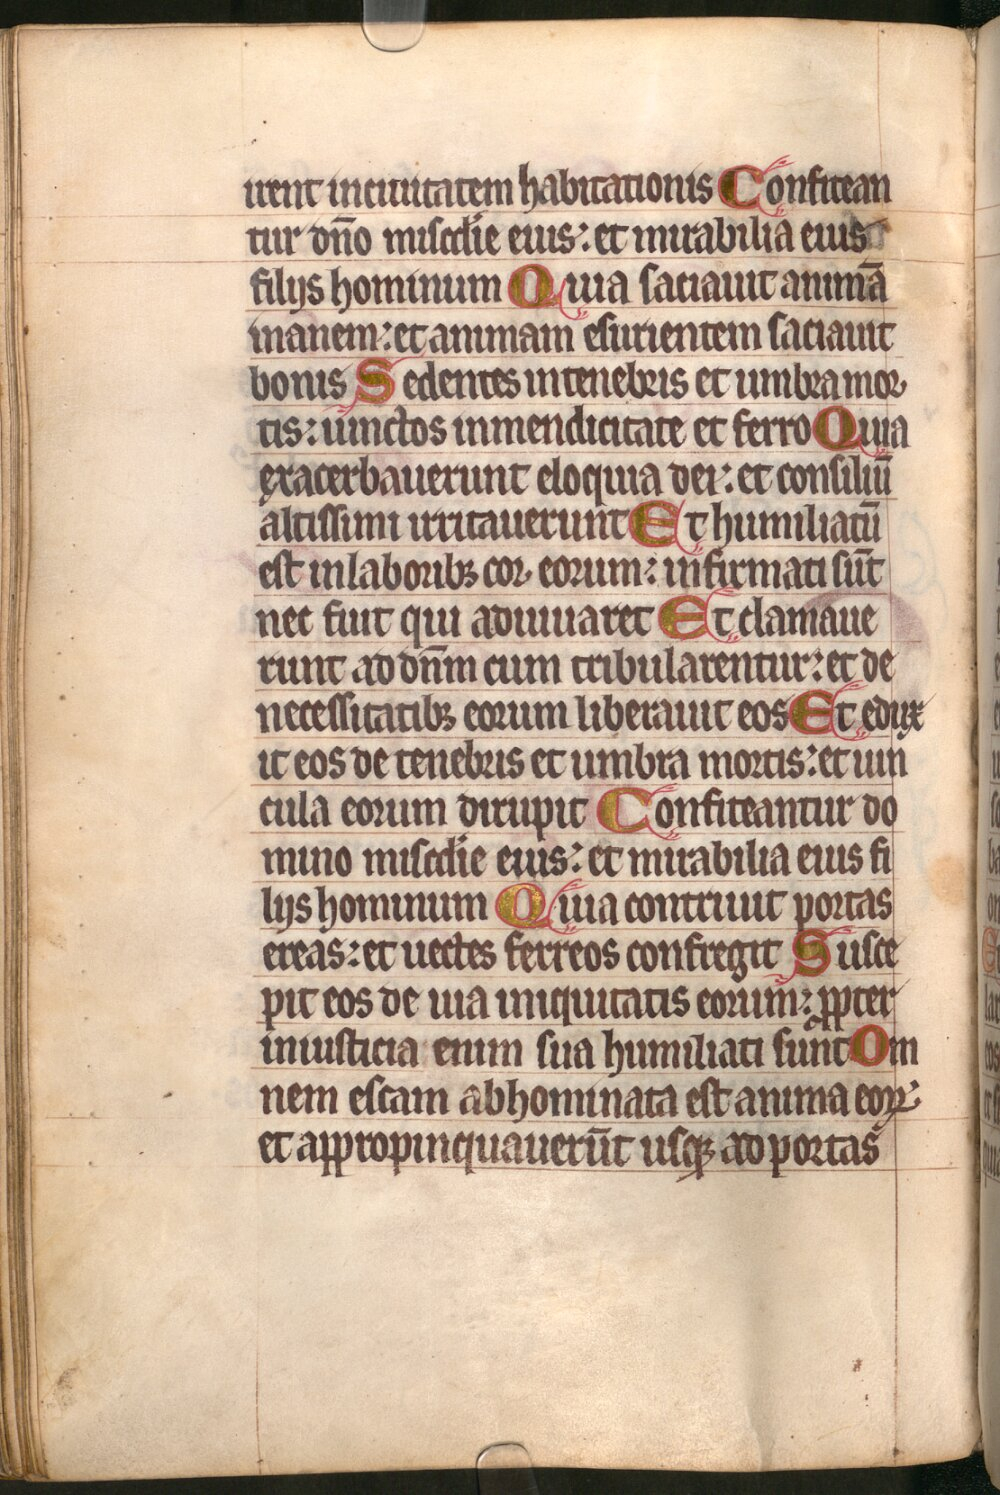 irent inciuitatem habitationis Confitean
tur dn̄o miscd̄ie eius: et mirabilia eius
filijs hominum Quia saciauit animā
manem: et animam esurientem saciauit
bonis Sedentes intenebris et umbra mor
tis: uinctos inmendicitate et ferro Quia
exacerbauerunt eloquia dei: et consiliū
altissimi irritauerunt Et humiliatū
est inlaboribꝫ cor eorum: infirmati sūt
nec fuit qui adiuuaret Et clamaue
runt ad dn̄m cum tribularentur: et de
necessitatibꝫ eorum liberauit eos Et edux
it eos de tenebris et umbra mortis: et uin
cula eorum dirupit Confiteantur do
mino miscd̄ie eius: et mirabilia eius fi
lijs hominum Quia contriuit portas
ereas: et uectes ferreos confregit Susce
pit eos de uia iniquitatis eorum: ꝓpter
iniusticia enim sua humiliati sunt Om
nem escam abhominata est anima eoꝝ:
et appropinquauerūt usqꝫ ad portas